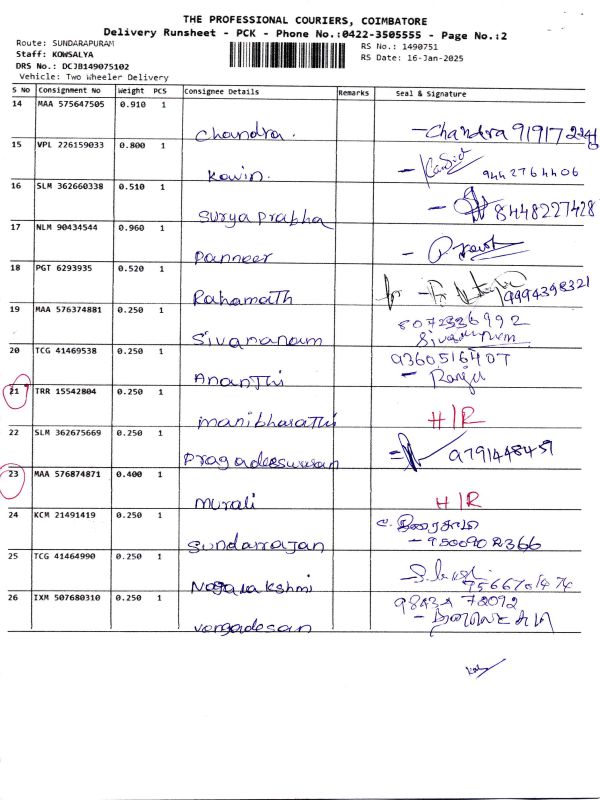 THE PROFESSIONAL COURIERS, COIMBATORE
Delivery Runsheet - PCK - Phone No.:0422-3505555 - Page No.:2
Route: SUNDARAPURAM
RS No.: 1490751
Staff: KOWSALYA
RS Date: 16-Jan-2025
DRS No.: DCJB149075102
Vehicle: Two Wheeler Delivery
S No Consignment No Weight PCS Consignee Details Remarks Seal & Signature
14 MAA 575647505 0.910 1
Chandra. - Chandra
15 VPL 226159033 0.800 1
Kavin. 9442764406
16 SLM 362660338 0.510 1
Surya Prabha 8448227428
17 NLM 90434544 0.960 1
Panneer
18 PGT 6293935 0.520 1
Rahamath for 9994398321
19 MAA 576374881 0.250 1
Sivananam
20 TCG 41469538 0.250 1 9360516407
Ananthi - Ranju
21 TRR 15542804 0.250 1
manibharathi H/R
22 SLM 362675669 0.250 1
Pragadeeswaran 9791448459
23 MAA 576874871 0.400 1
murali H/R
24 KCM 21491419 0.250 1
Sundarrajan
25 TCG 41464990 0.250 1
Nagarakshmi
26 IXM 507680310 0.250 1
vengadesan